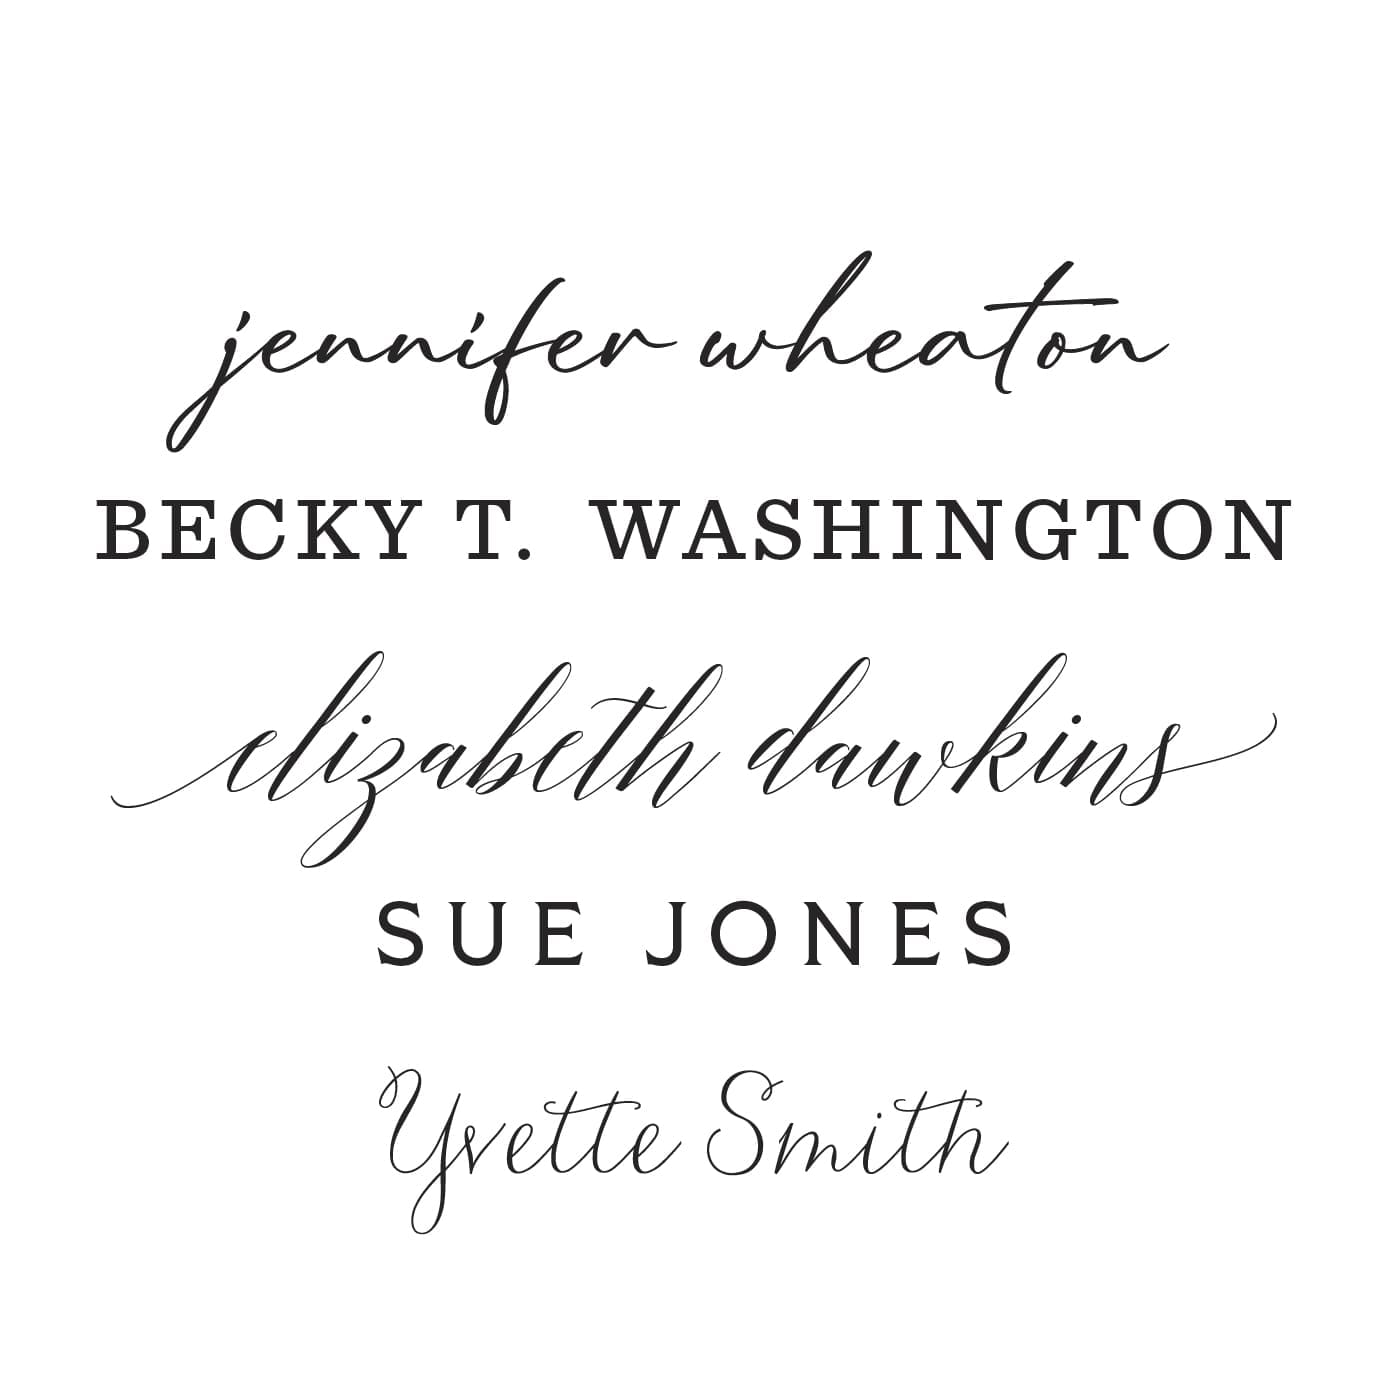 jennifer wheaton
BECKY T. WASHINGTON
elizabeth dawkins
SUE JONES
Yvette Smith